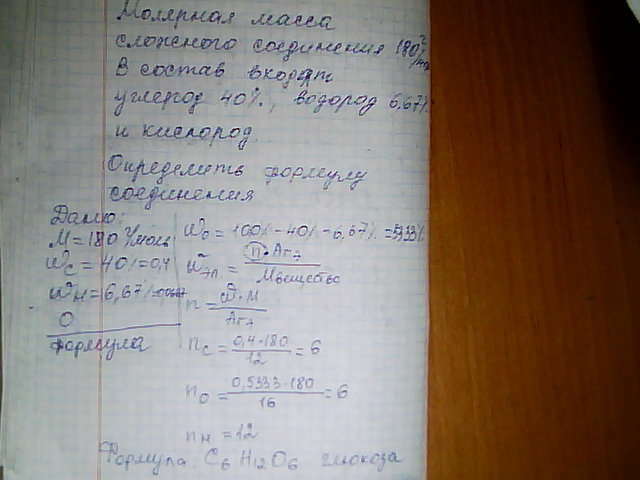 Молярная масса
сложного соединения 180 г/моль
В состав входят
углерод 40%, водород 6.67%
и кислород.
Определить формулу
соединения
Дано:
M = 180 г/моль
W_C = 40% = 0,4
W_H = 6,67%
O
формула
W_O = 100% - 40% - 6,67% = 53,33%
W_эл = n · Ar_э / M вещество
n = W · M / Ar_э
n_C = 0,4 · 180 / 12 = 6
n_O = 0,5333 · 180 / 16 = 6
n_H = 12
Формула: C6 H12 O6 глюкоза